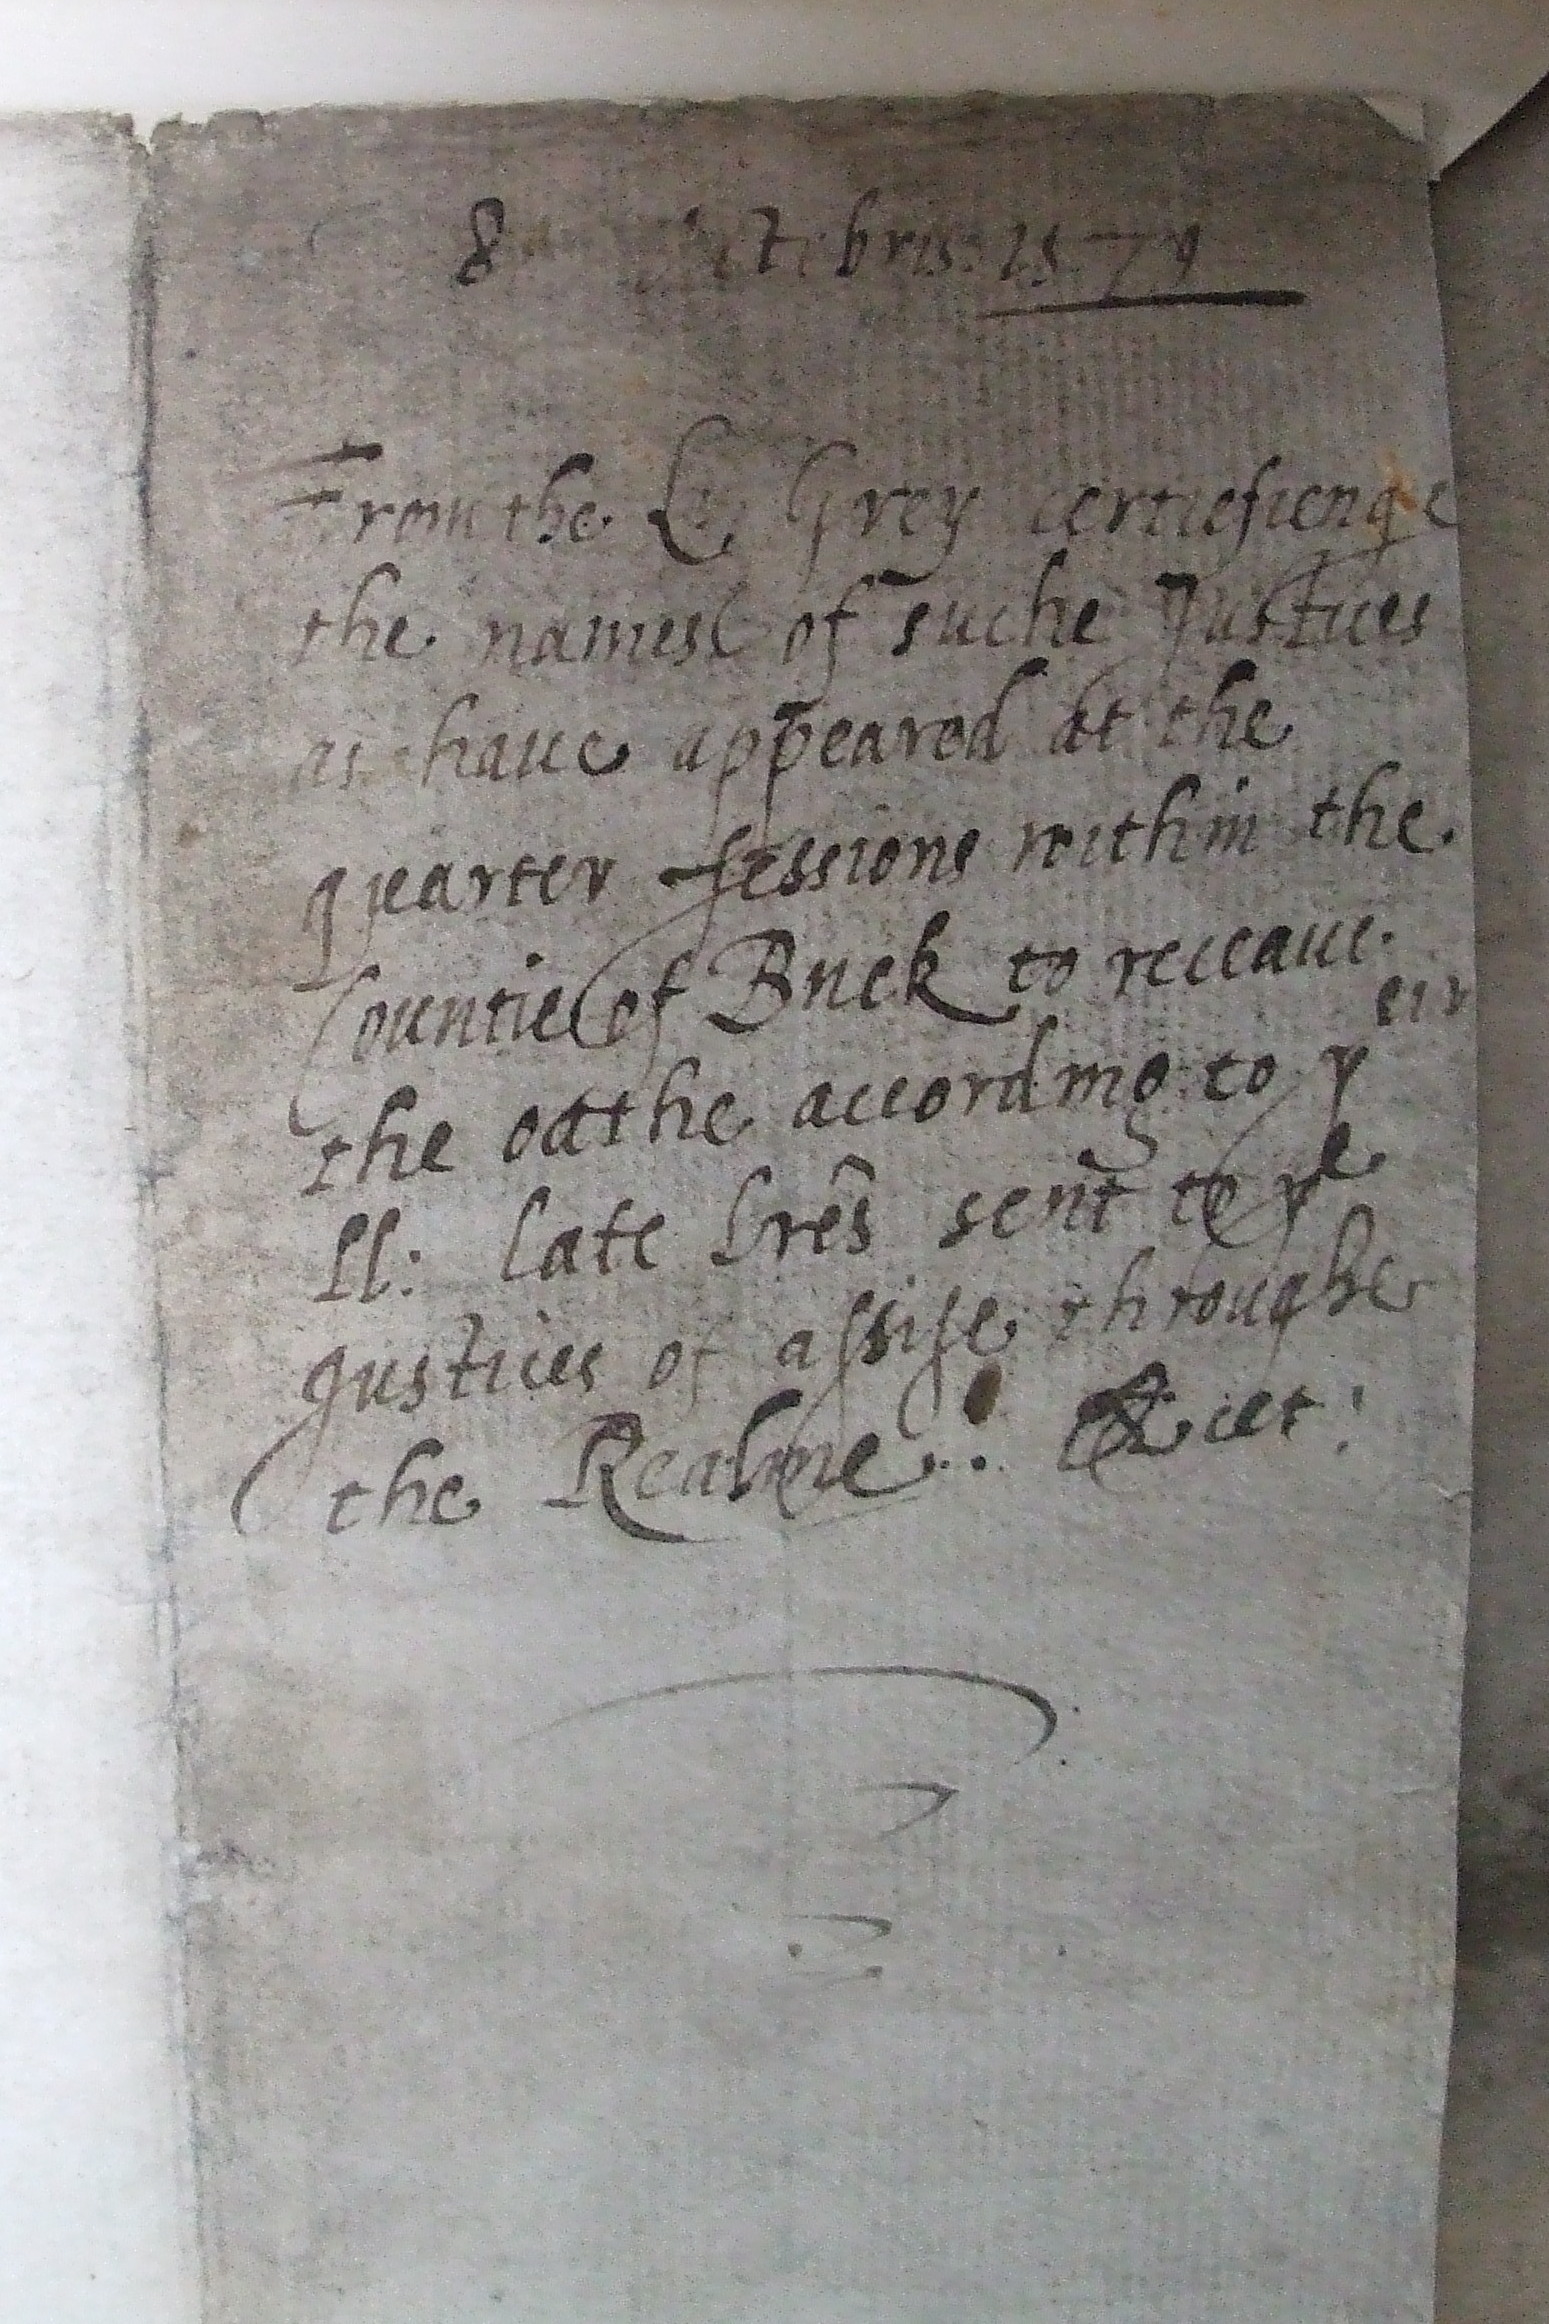 8 octobris: 1579
From the L. Grey certiefienge
the names of suche Justices
as haue appeared at the
quarter sessions within the
Countie of Buck to receaue
the oathe according to yeir
ll: late lrẽs sent to ye
Justices of assise throughe
the Realme..: & cet: